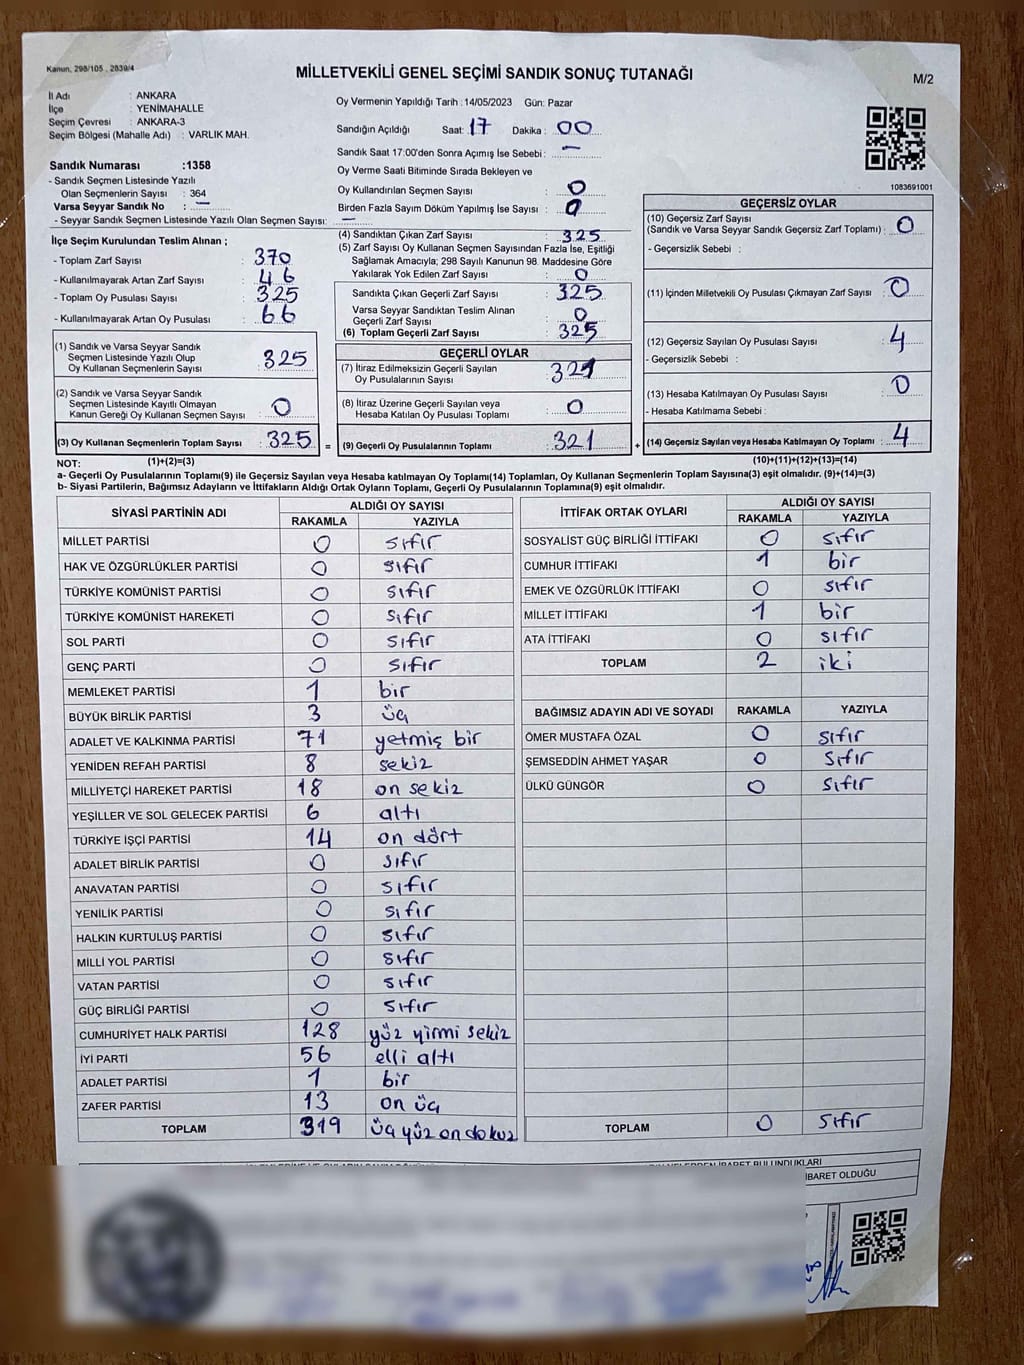 Kanun, 298/105 , 2839/4
MİLLETVEKİLİ GENEL SEÇİMİ SANDIK SONUÇ TUTANAĞI
M/2
İl Adı : ANKARA
İlçe : YENİMAHALLE
Seçim Çevresi : ANKARA-3
Seçim Bölgesi (Mahalle Adı) : VARLIK MAH.
Sandık Numarası :1358
- Sandık Seçmen Listesinde Yazılı
Olan Seçmenlerin Sayısı : 364
Varsa Seyyar Sandık No : —
- Seyyar Sandık Seçmen Listesinde Yazılı Olan Seçmen Sayısı: —
Oy Vermenin Yapıldığı Tarih :14/05/2023 Gün: Pazar
Sandığın Açıldığı Saat: 17 Dakika : 00
Sandık Saat 17:00'den Sonra Açımış İse Sebebi : —
Oy Verme Saati Bitiminde Sırada Bekleyen ve
Oy Kullandırılan Seçmen Sayısı : 0
Birden Fazla Sayım Döküm Yapılmış İse Sayısı : 0
1083691001
İlçe Seçim Kurulundan Teslim Alınan ;
- Toplam Zarf Sayısı : 370
- Kullanılmayarak Artan Zarf Sayısı : 46
- Toplam Oy Pusulası Sayısı : 325
- Kullanılmayarak Artan Oy Pusulası : 66
(1) Sandık ve Varsa Seyyar Sandık
Seçmen Listesinde Yazılı Olup
Oy Kullanan Seçmenlerin Sayısı : 325
(2) Sandık ve Varsa Seyyar Sandık
Seçmen Listesinde Kayıtlı Olmayan
Kanun Gereği Oy Kullanan Seçmen Sayısı : 0
(3) Oy Kullanan Seçmenlerin Toplam Sayısı : 325 =
(4) Sandıktan Çıkan Zarf Sayısı : 325
(5) Zarf Sayısı Oy Kullanan Seçmen Sayısından Fazla İse, Eşitliği
Sağlamak Amacıyla; 298 Sayılı Kanunun 98. Maddesine Göre
Yakılarak Yok Edilen Zarf Sayısı : 0
Sandıkta Çıkan Geçerli Zarf Sayısı : 325
Varsa Seyyar Sandıktan Teslim Alınan
Geçerli Zarf Sayısı : 0
(6) Toplam Geçerli Zarf Sayısı : 325
GEÇERLİ OYLAR
(7) İtiraz Edilmeksizin Geçerli Sayılan
Oy Pusulalarının Sayısı : 321
(8) İtiraz Üzerine Geçerli Sayılan veya
Hesaba Katılan Oy Pusulası Toplamı : 0
(9) Geçerli Oy Pusulalarının Toplamı : 321 +
GEÇERSİZ OYLAR
(10) Geçersiz Zarf Sayısı
(Sandık ve Varsa Seyyar Sandık Geçersiz Zarf Toplamı) : 0
- Geçersizlik Sebebi :
(11) İçinden Milletvekili Oy Pusulası Çıkmayan Zarf Sayısı : 0
(12) Geçersiz Sayılan Oy Pusulası Sayısı : 4
- Geçersizlik Sebebi :
(13) Hesaba Katılmayan Oy Pusulası Sayısı : 0
- Hesaba Katılmama Sebebi :
(14) Geçersiz Sayılan veya Hesaba Katılmayan Oy Toplamı : 4
NOT: (1)+(2)=(3) (10)+(11)+(12)+(13)=(14)
a- Geçerli Oy Pusulalarının Toplamı(9) ile Geçersiz Sayılan veya Hesaba katılmayan Oy Toplamı(14) Toplamları, Oy Kullanan Seçmenlerin Toplam Sayısına(3) eşit olmalıdır. (9)+(14)=(3)
b- Siyasi Partilerin, Bağımsız Adayların ve İttifakların Aldığı Ortak Oyların Toplamı, Geçerli Oy Pusulalarının Toplamına(9) eşit olmalıdır.
SİYASİ PARTİNİN ADI ALDIĞI OY SAYISI
RAKAMLA YAZIYLA
MİLLET PARTİSİ 0 sıfır
HAK VE ÖZGÜRLÜKLER PARTİSİ 0 sıfır
TÜRKİYE KOMÜNİST PARTİSİ 0 sıfır
TÜRKİYE KOMÜNİST HAREKETİ 0 sıfır
SOL PARTİ 0 sıfır
GENÇ PARTİ 0 sıfır
MEMLEKET PARTİSİ 1 bir
BÜYÜK BİRLİK PARTİSİ 3 üç
ADALET VE KALKINMA PARTİSİ 71 yetmiş bir
YENİDEN REFAH PARTİSİ 8 sekiz
MİLLİYETÇİ HAREKET PARTİSİ 18 on sekiz
YEŞİLLER VE SOL GELECEK PARTİSİ 6 altı
TÜRKİYE İŞÇİ PARTİSİ 14 on dört
ADALET BİRLİK PARTİSİ 0 sıfır
ANAVATAN PARTİSİ 0 sıfır
YENİLİK PARTİSİ 0 sıfır
HALKIN KURTULUŞ PARTİSİ 0 sıfır
MİLLİ YOL PARTİSİ 0 sıfır
VATAN PARTİSİ 0 sıfır
GÜÇ BİRLİĞİ PARTİSİ 0 sıfır
CUMHURİYET HALK PARTİSİ 128 yüz yirmi sekiz
İYİ PARTİ 56 elli altı
ADALET PARTİSİ 1 bir
ZAFER PARTİSİ 13 on üç
TOPLAM 319 üç yüz on dokuz
İTTİFAK ORTAK OYLARI ALDIĞI OY SAYISI
RAKAMLA YAZIYLA
SOSYALİST GÜÇ BİRLİĞİ İTTİFAKI 0 sıfır
CUMHUR İTTİFAKI 1 bir
EMEK VE ÖZGÜRLÜK İTTİFAKI 0 sıfır
MİLLET İTTİFAKI 1 bir
ATA İTTİFAKI 0 sıfır
TOPLAM 2 iki
BAĞIMSIZ ADAYIN ADI VE SOYADI RAKAMLA YAZIYLA
ÖMER MUSTAFA ÖZAL 0 sıfır
ŞEMSEDDİN AHMET YAŞAR 0 sıfır
ÜLKÜ GÜNGÖR 0 sıfır
TOPLAM 0 sıfır
İBARET BULUNDUKLARI
İBARET OLDUĞU